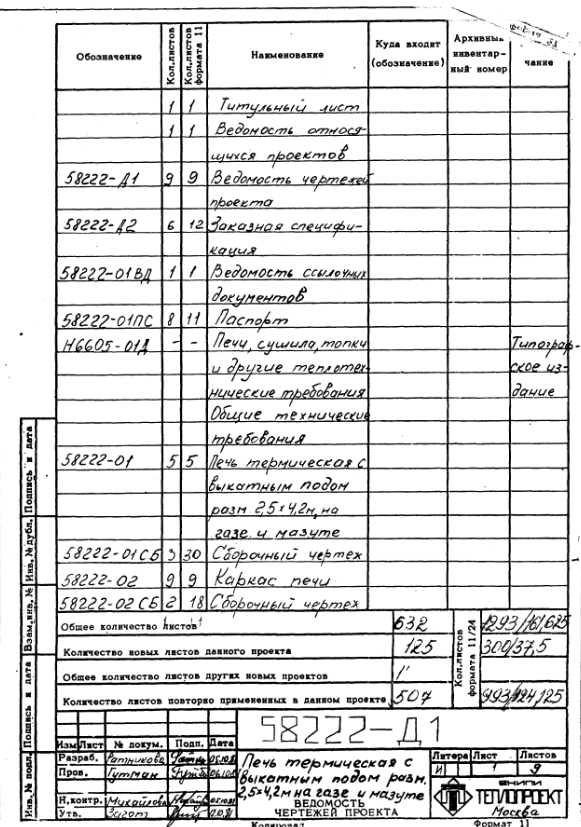 Обозначение | Кол.листов | Кол.листов формата 11 | Наименование | Куда входит (обозначение) | Архивный инвентар-ный номер | чание
1 1 Титульный лист
1 1 Ведомость относя-
щихся проектов
58222-Д1 9 9 Ведомость чертежей
проекта
58222-Д2 6 12 Заказная специфи-
кация
58222-01ВД 1 1 Ведомость ссылочных
документов
58222-01ПС 8 11 Паспорт
Н6605-01Д - - Печи, сушила, топки Типограф-
и другие теплотех- ское из-
нические требования дание
Общие технические
требования
58222-01 5 5 Печь термическая с
выкатным подом
разм 2,5×4,2м, на
газе и мазуте
58222-01СБ 3 30 Сборочный чертеж
58222-02 9 9 Каркас печи
58222-02СБ 2 18 Сборочный чертеж
Общее количество листов 632 Кол.листов формата 11/24 1293/161,625
Количество новых листов данного проекта 125 300/37,5
Общее количество листов других новых проектов
Количество листов повторно примененных в данном проекте 507 993/124,125
58222-Д1
Изм Лист № докум. Подп. Дата
Разраб. Ратникова
Пров. Гутман
Н.контр. Михайлова
Утв.
Печь термическая с
выкатным подом разм.
2,5×4,2м на газе и мазуте
ВЕДОМОСТЬ
ЧЕРТЕЖЕЙ ПРОЕКТА
Литера Лист Листов
И 1 9
ВНИПИ
ТЕПЛОПРОЕКТ
Москва
Копировал Формат 11
Инв.№ подл. Подпись и дата Взам.инв.№ Инв.№ дубл. Подпись и дата